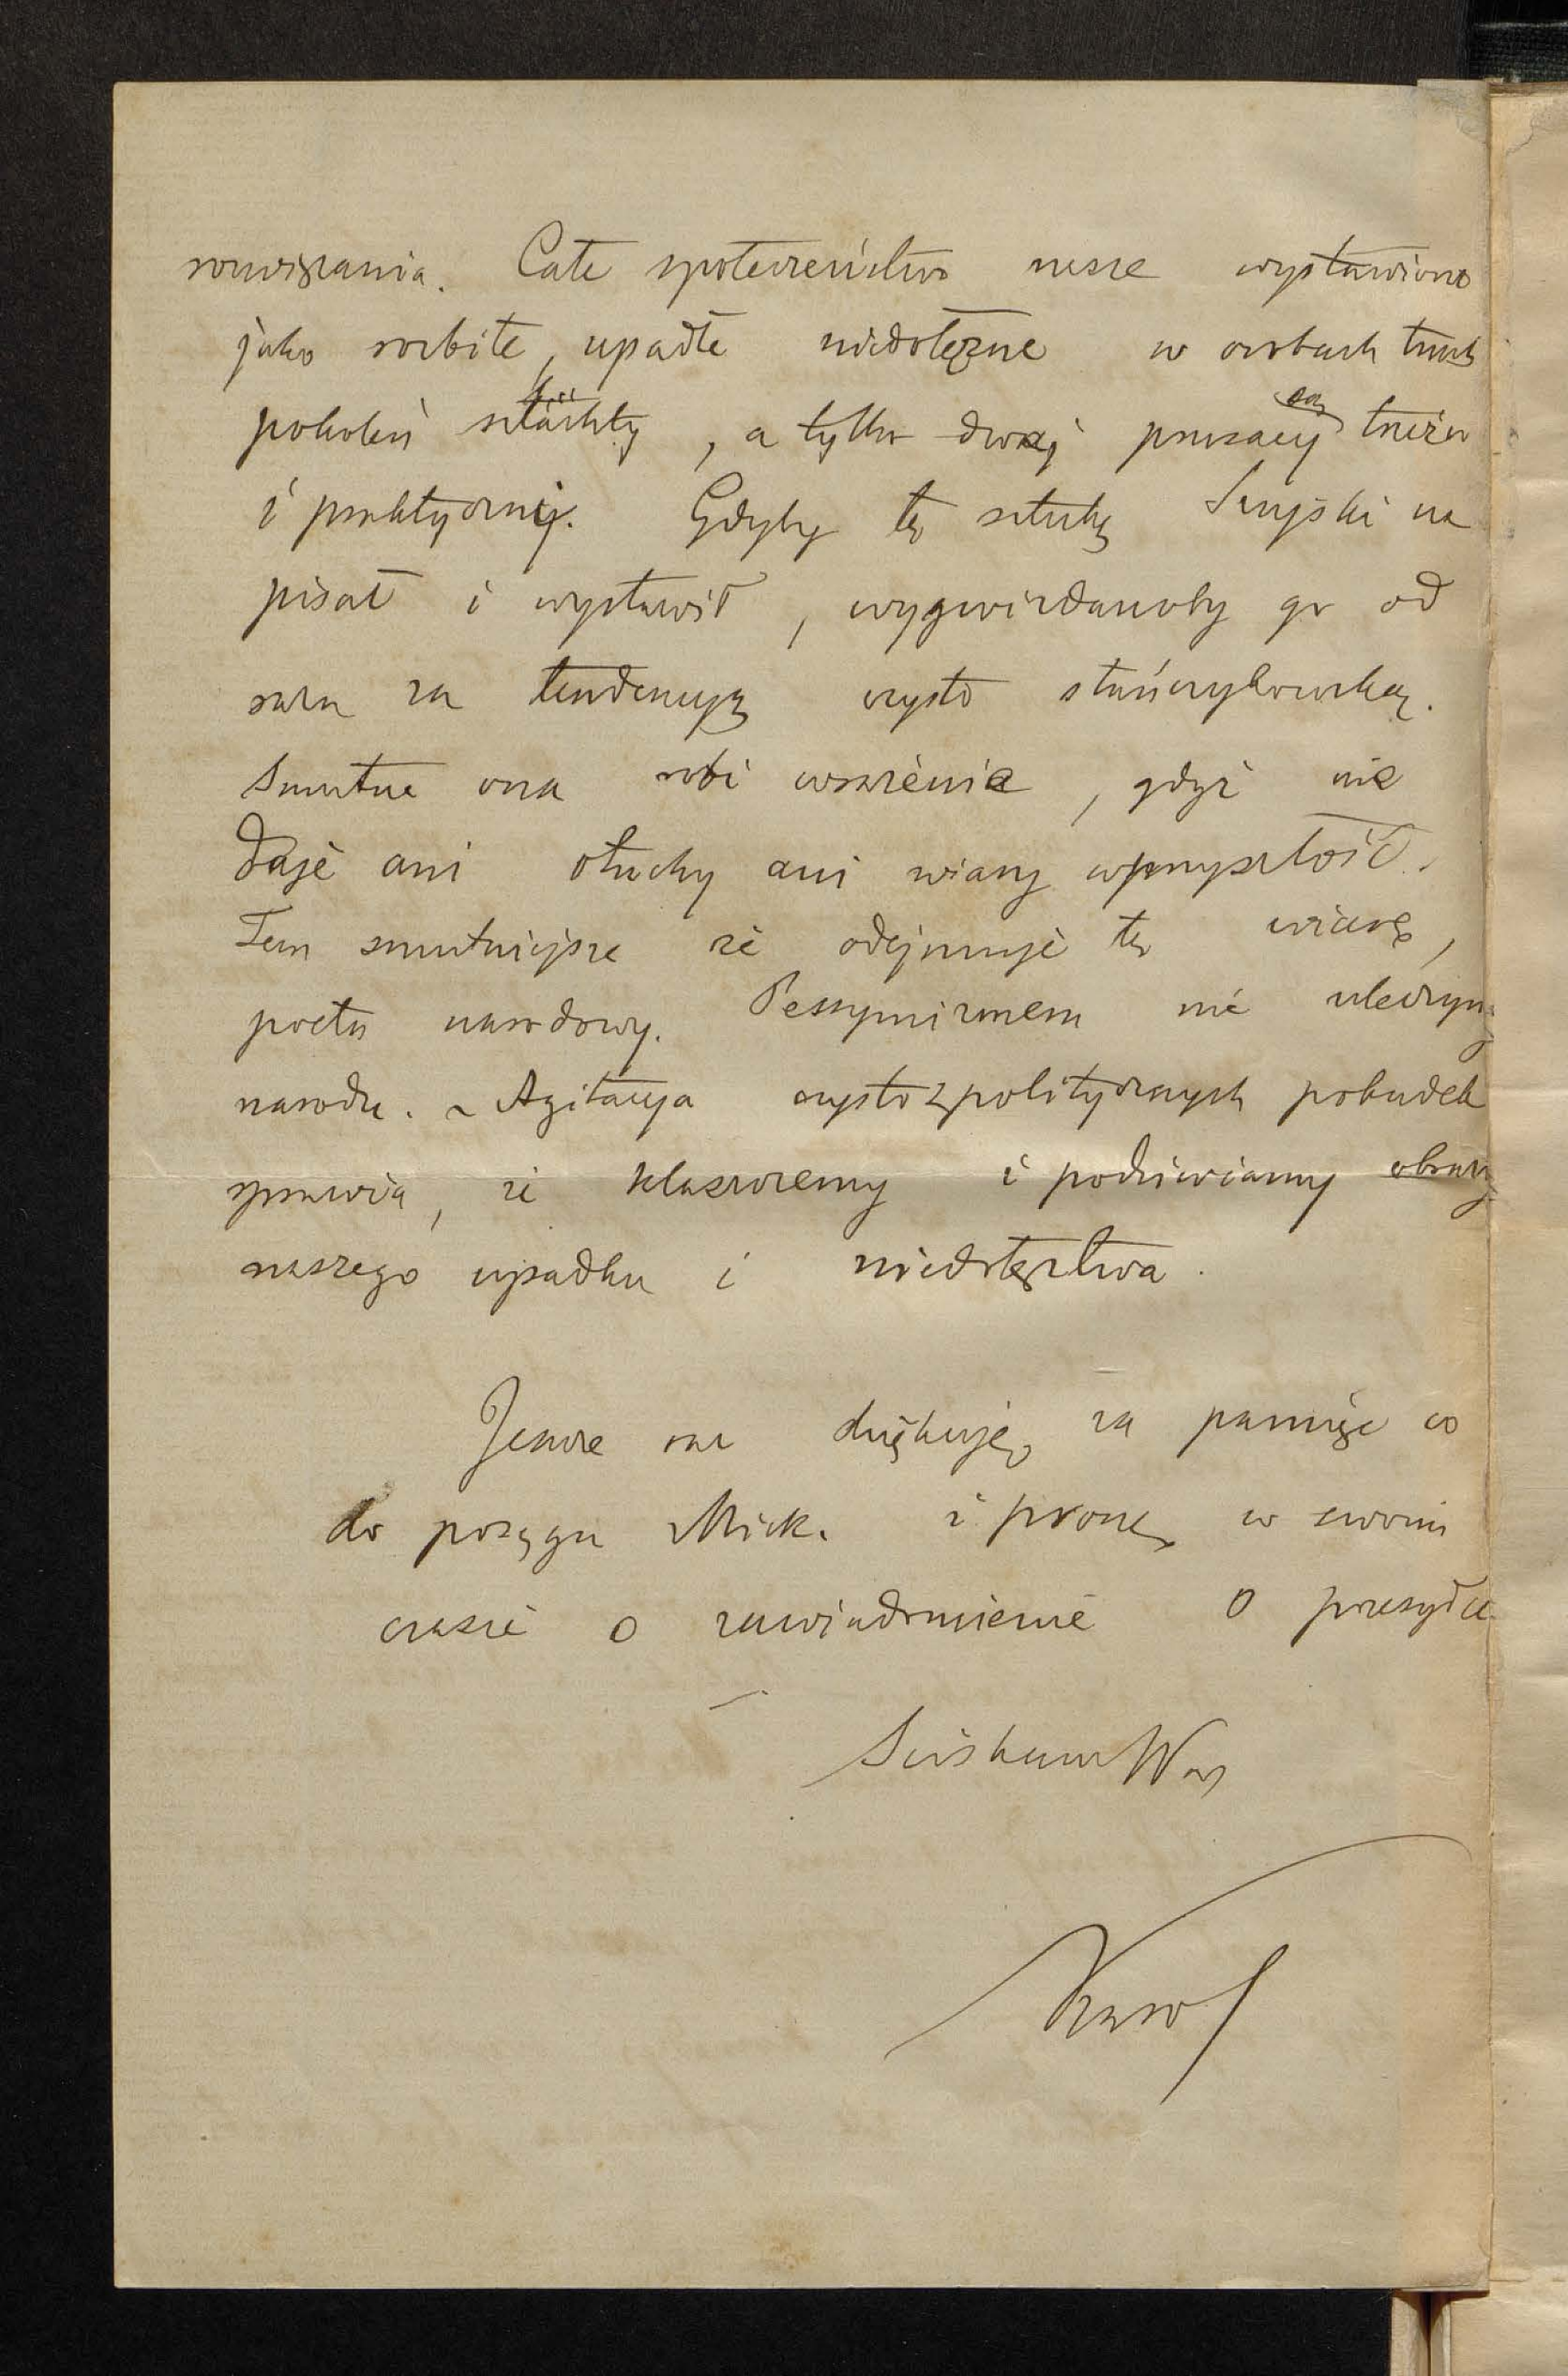 rozwiązania. Całe społeczeństwo nasze wystawiono
jako rozbite, upadłe niedołężne w osobach trzech
pokoleń szlachty, a tylko dwaj prusacy są trzeźwi
i praktyczni. Gdyby tę sztukę Szujski na
pisał i wystawił, wygwizdanoby go od
razu za tendencyą czysto stańczykowską.
Smutne ona robi wrażenie, gdyż nie
daje ani otuchy ani wiary w przyszłość.
Tem smutniejsze że odejmuje tę wiarę,
poeta narodowy. Pessymizmem nie uleczymy
narodu. ~ Agitacya czysto z politycznych pobudek
sprawia, że klaszczemy i podziwiamy obrazy
naszego upadku i niedołęztwa.
Jeszcze raz dziękuję za pamięć co
do posągu Mick. i proszę w swoim
czasie o zawiadomienie o przesyłce
Ściskam Was
Karol